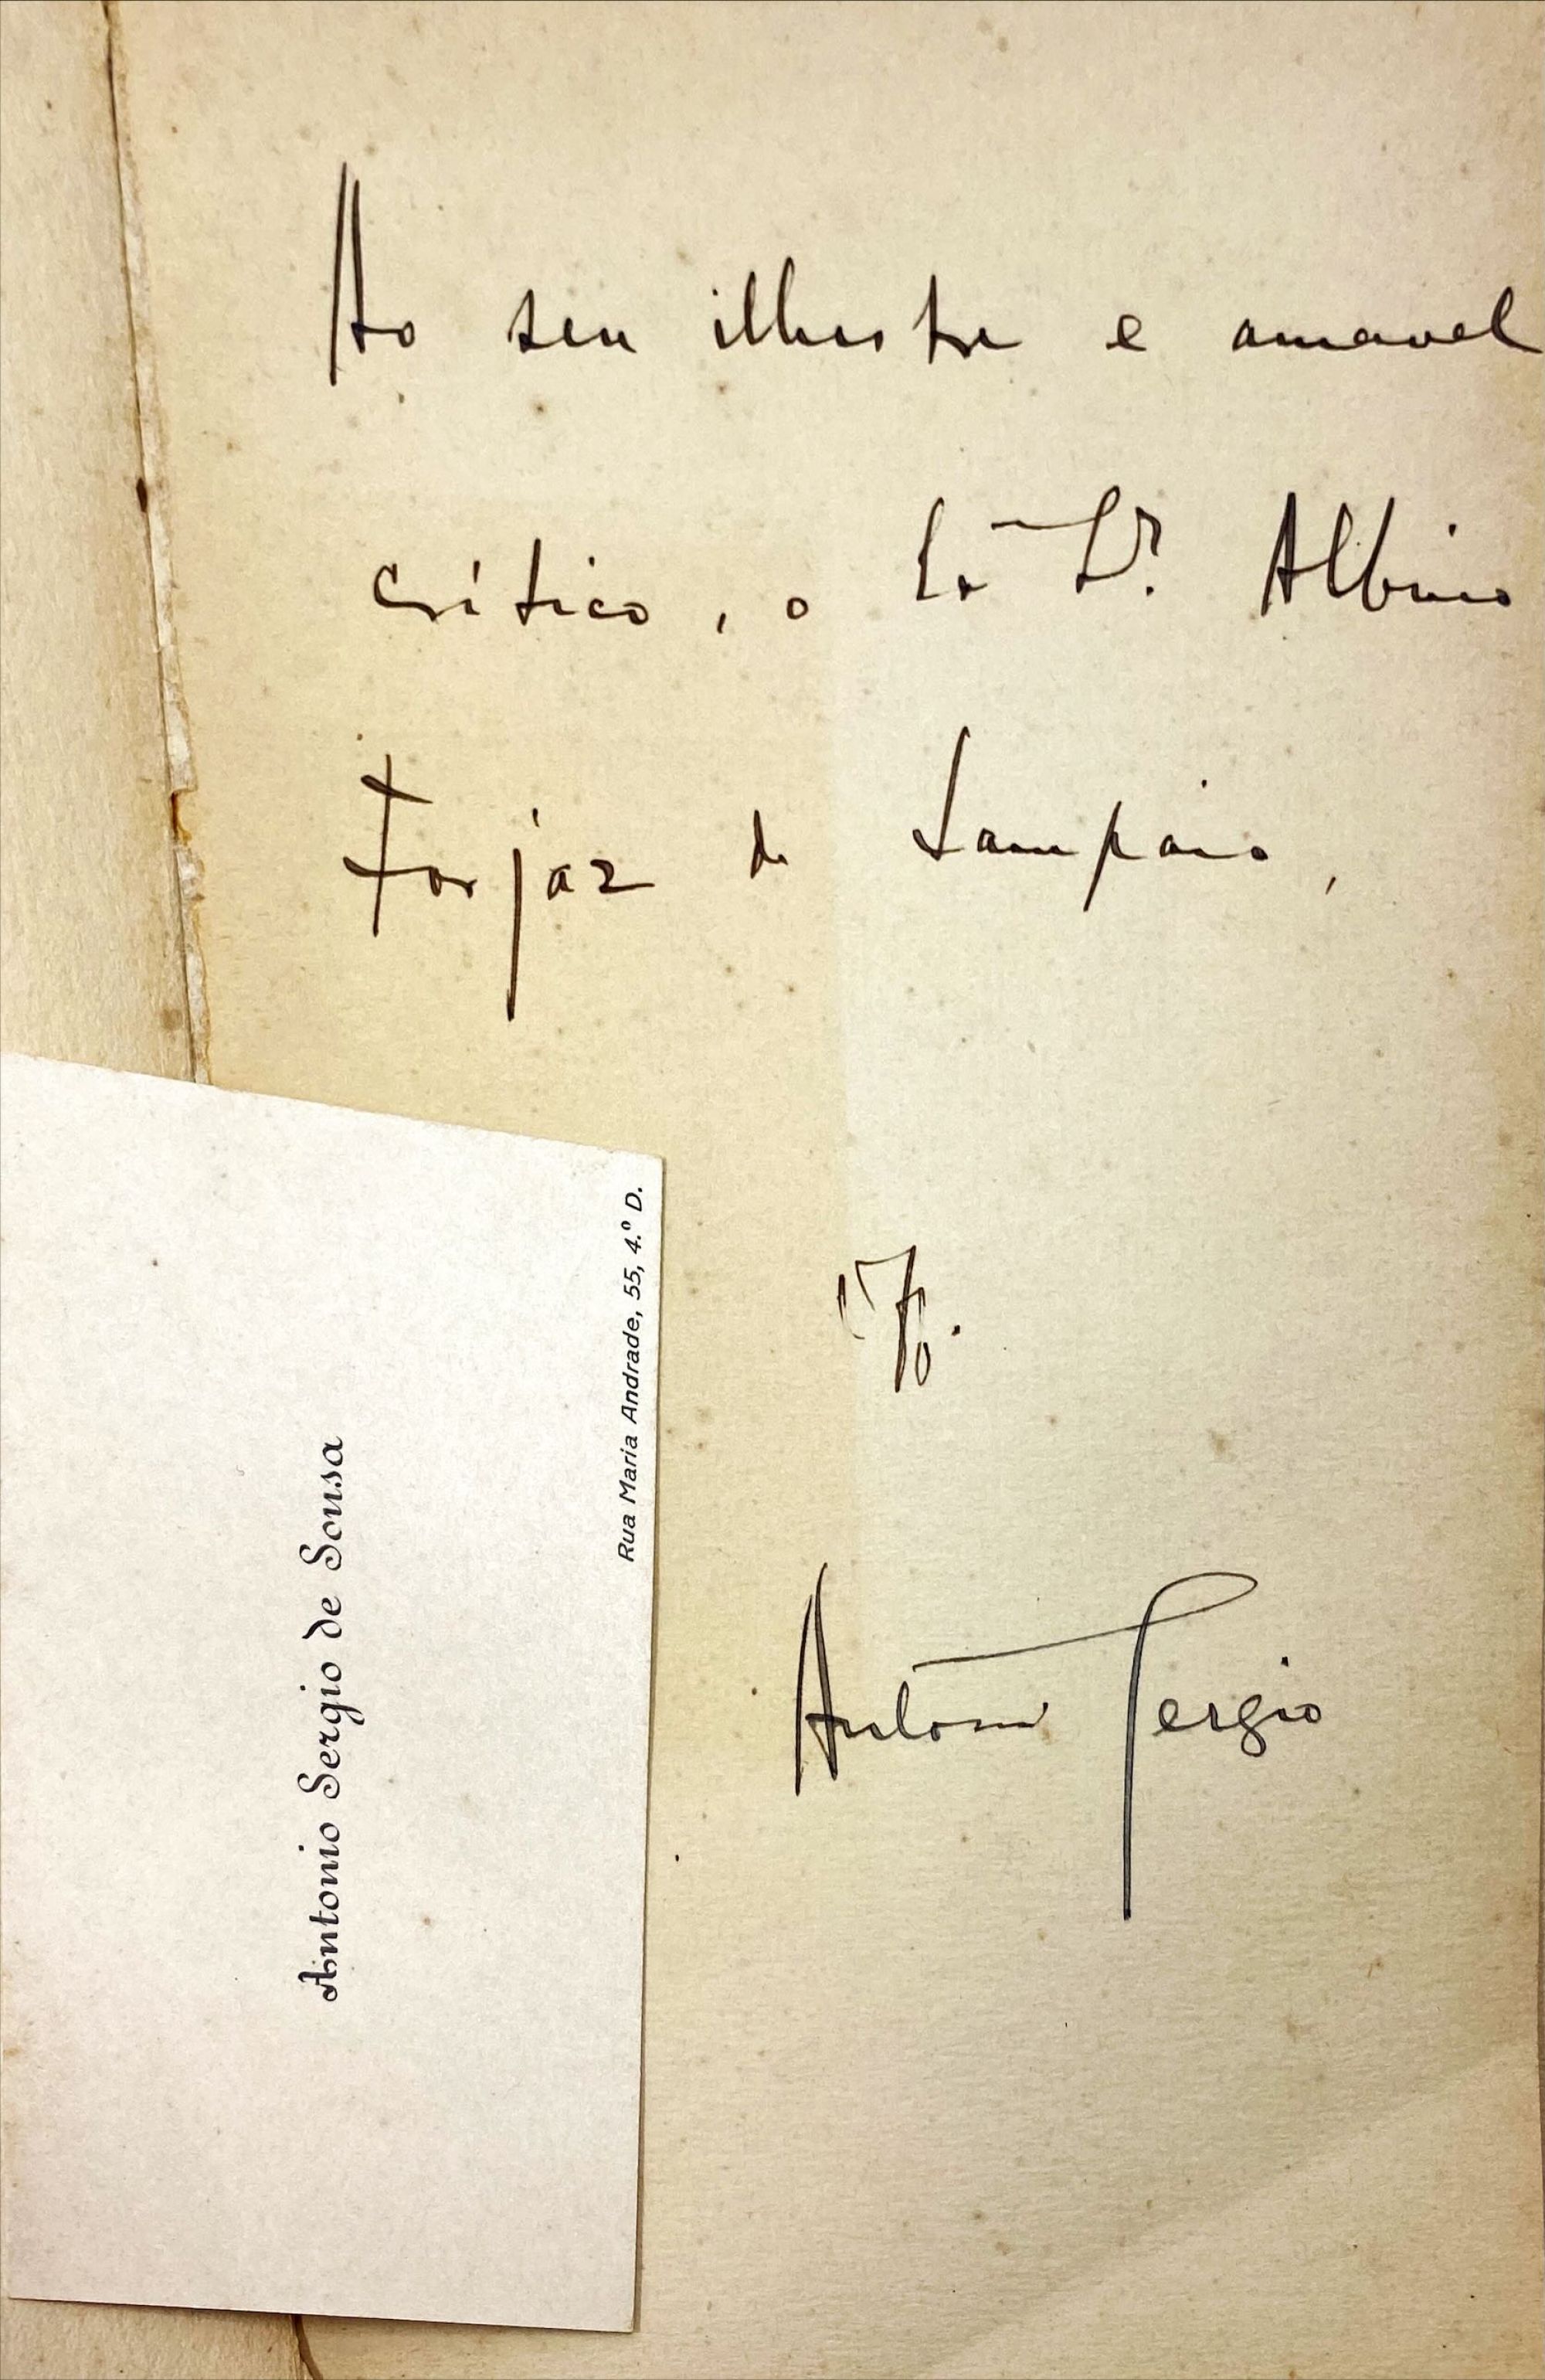 Ao seu illustre e amavel
crítico, o Ex.mo Sr. Albino
Forjaz de Sampaio,
Antonio Sergio
Antonio Sergio de Sousa
Rua Maria Andrade, 55, 4.º D.